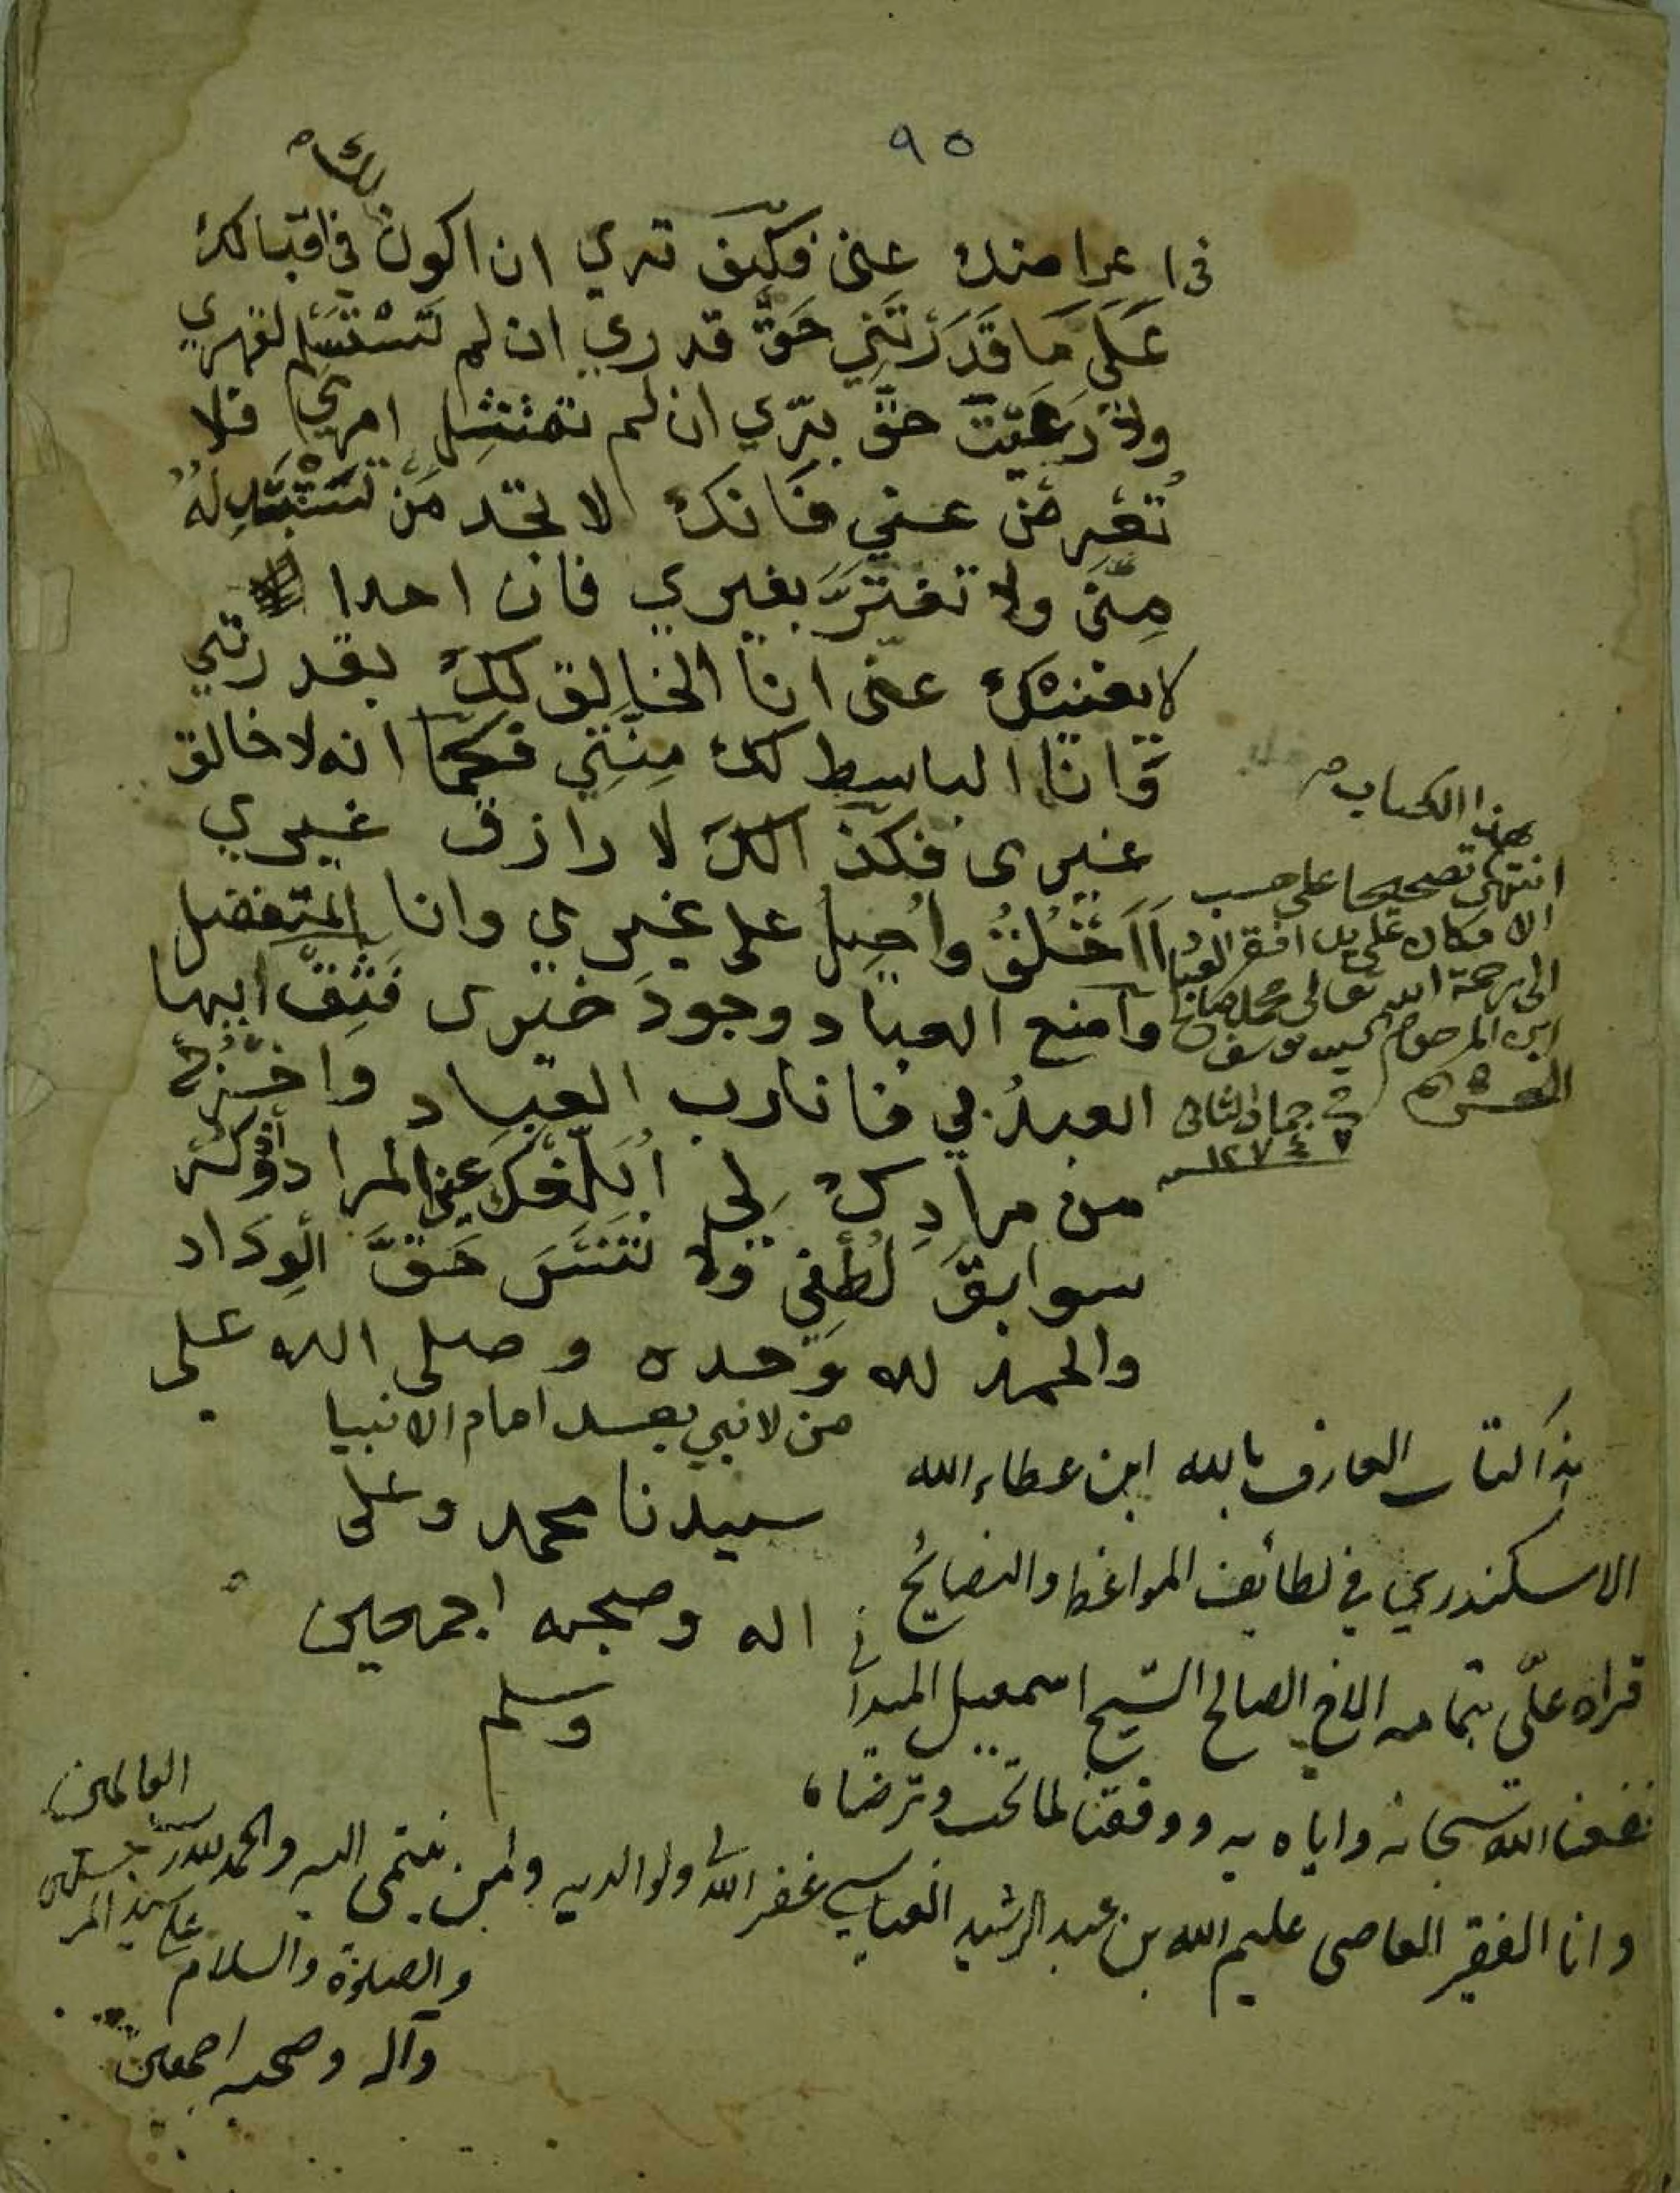 ٩٥
لك
في اعراضك عني فكيف ترى ان اكون في اقبالك
عَلَى مَا قَدَرْتَنِي حَقَّ قدري ان لم تَسْتَسْلم لقهري
ولا رَعَيْتَ حقَّ برّي ان لم تمتثل امري فلا
تُعْرِضَنَّ عني فَانك لا تجد مَنْ تَسْتَبْدِلهُ
مِنّى ولا تغترَّ بغيري فان احدا
لا يغنيك عنى انا الخالق لك بقدرتي
وَانا الباسط لك مِنَّتِي فكما انه لا خالق
غيرى فكذلك لا رازق غيري
أَأَخْلُقُ واُحِيلُ على غيري وانا المتفضل
وامنع العباد وجودَ خيرى فَثِقْ ايها
العبدُ بي فانا رب العباد واخرُجْ
من مرادِك لي اُبَلِّغك عني المراد واذكر
سوابقَ لُطْفِي ولا تَنْسَ حَقَّ الوِدَاد
والحمد لله وَحده وصلى الله على
من لا نبي بعده امام الانبيا
سيدنا محمد وعلى
اله وصحبه اجمعين
وسلم
هذا الكتاب
انتهى تصحيحا على حسب
الامكان على يد افقر العباد
الى رحمة الله تعالى محمد صالح
ابن المرحوم السيد يوسف
في ٧ جماد الثانى
١٢٧٤
هذا كتاب العارف بالله ابن عطاء الله
الاسكندري في لطائف المواعظ والنصائح
قراه علّي بتمامه الاخ الصالح الشيخ اسمعيل الميداني
نفعنا الله سبحانه واياه به ووفقنا لما تحب وترضاه
وانا الفقير العاصى عليم الله بن عبد الرشيد العباسي غفر الله له ولوالديه ولمن ينتمى اليه والحمد لله رب
العالمين
والصلوة والسلام على سيد المرسلين
وآله وصحبه اجمعين